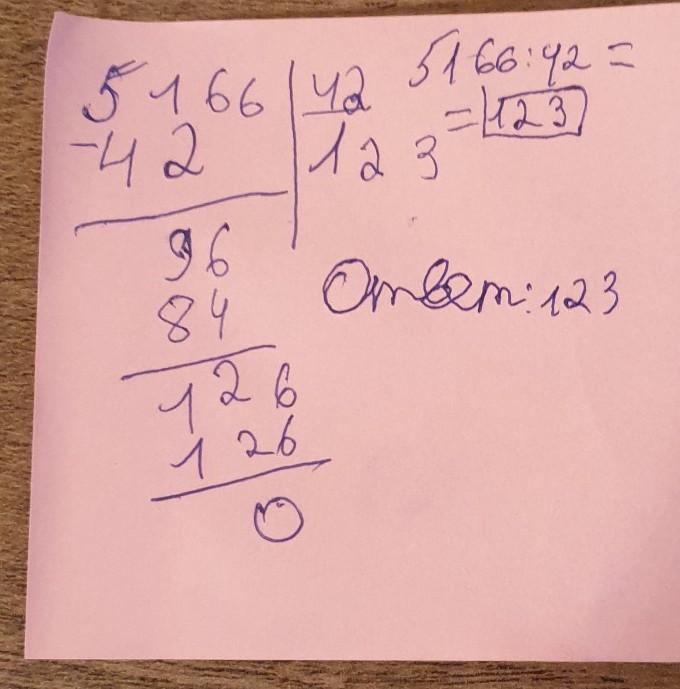 5166 42 5166:42 =
-42 123 = 123
96
84 Ответ: 123
126
126
0